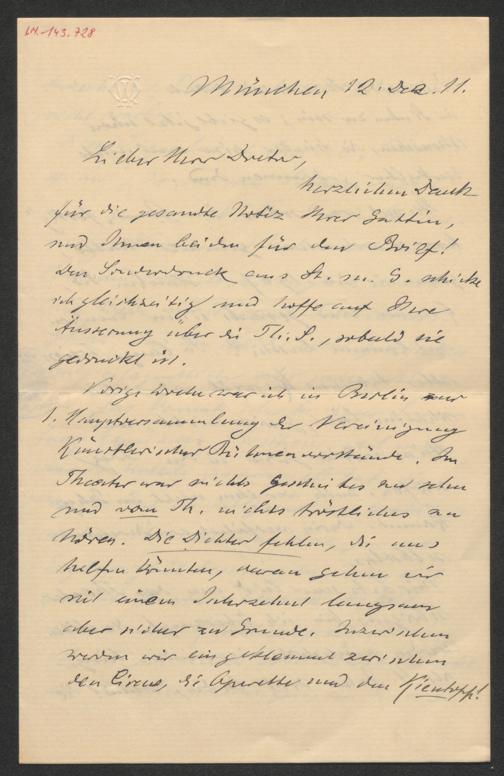 LN.-143.728
München 12. Dez. 11.
Lieber Herr Doctor,
herzlichen Dank
für die gesandte Notiz Ihrer Gattin,
und Ihnen beiden für den Brief!
Den Sonderdruck aus St. u. G. schicke
ich gleichzeitig und hoffe auf Ihre
Äusserung über die Th. S., sobald sie
gedruckt ist.
Vorige Woche war ich in Berlin zur
1. Hauptversammlung der Vereinigung
Künstlerischer Bühnenvorstände. Im
Theater war nichts Gescheites zu sehen
und vom Th. nichts tröstliches zu
hören. Die Dichter fehlen, die uns
helfen könnten, daran gehen wir
seit einem Jahrzehnt langsam
aber sicher zu Grunde. Inzwischen
werden wir eingeklemmt zwischen
den Circus, die Operette und den Kientopp!